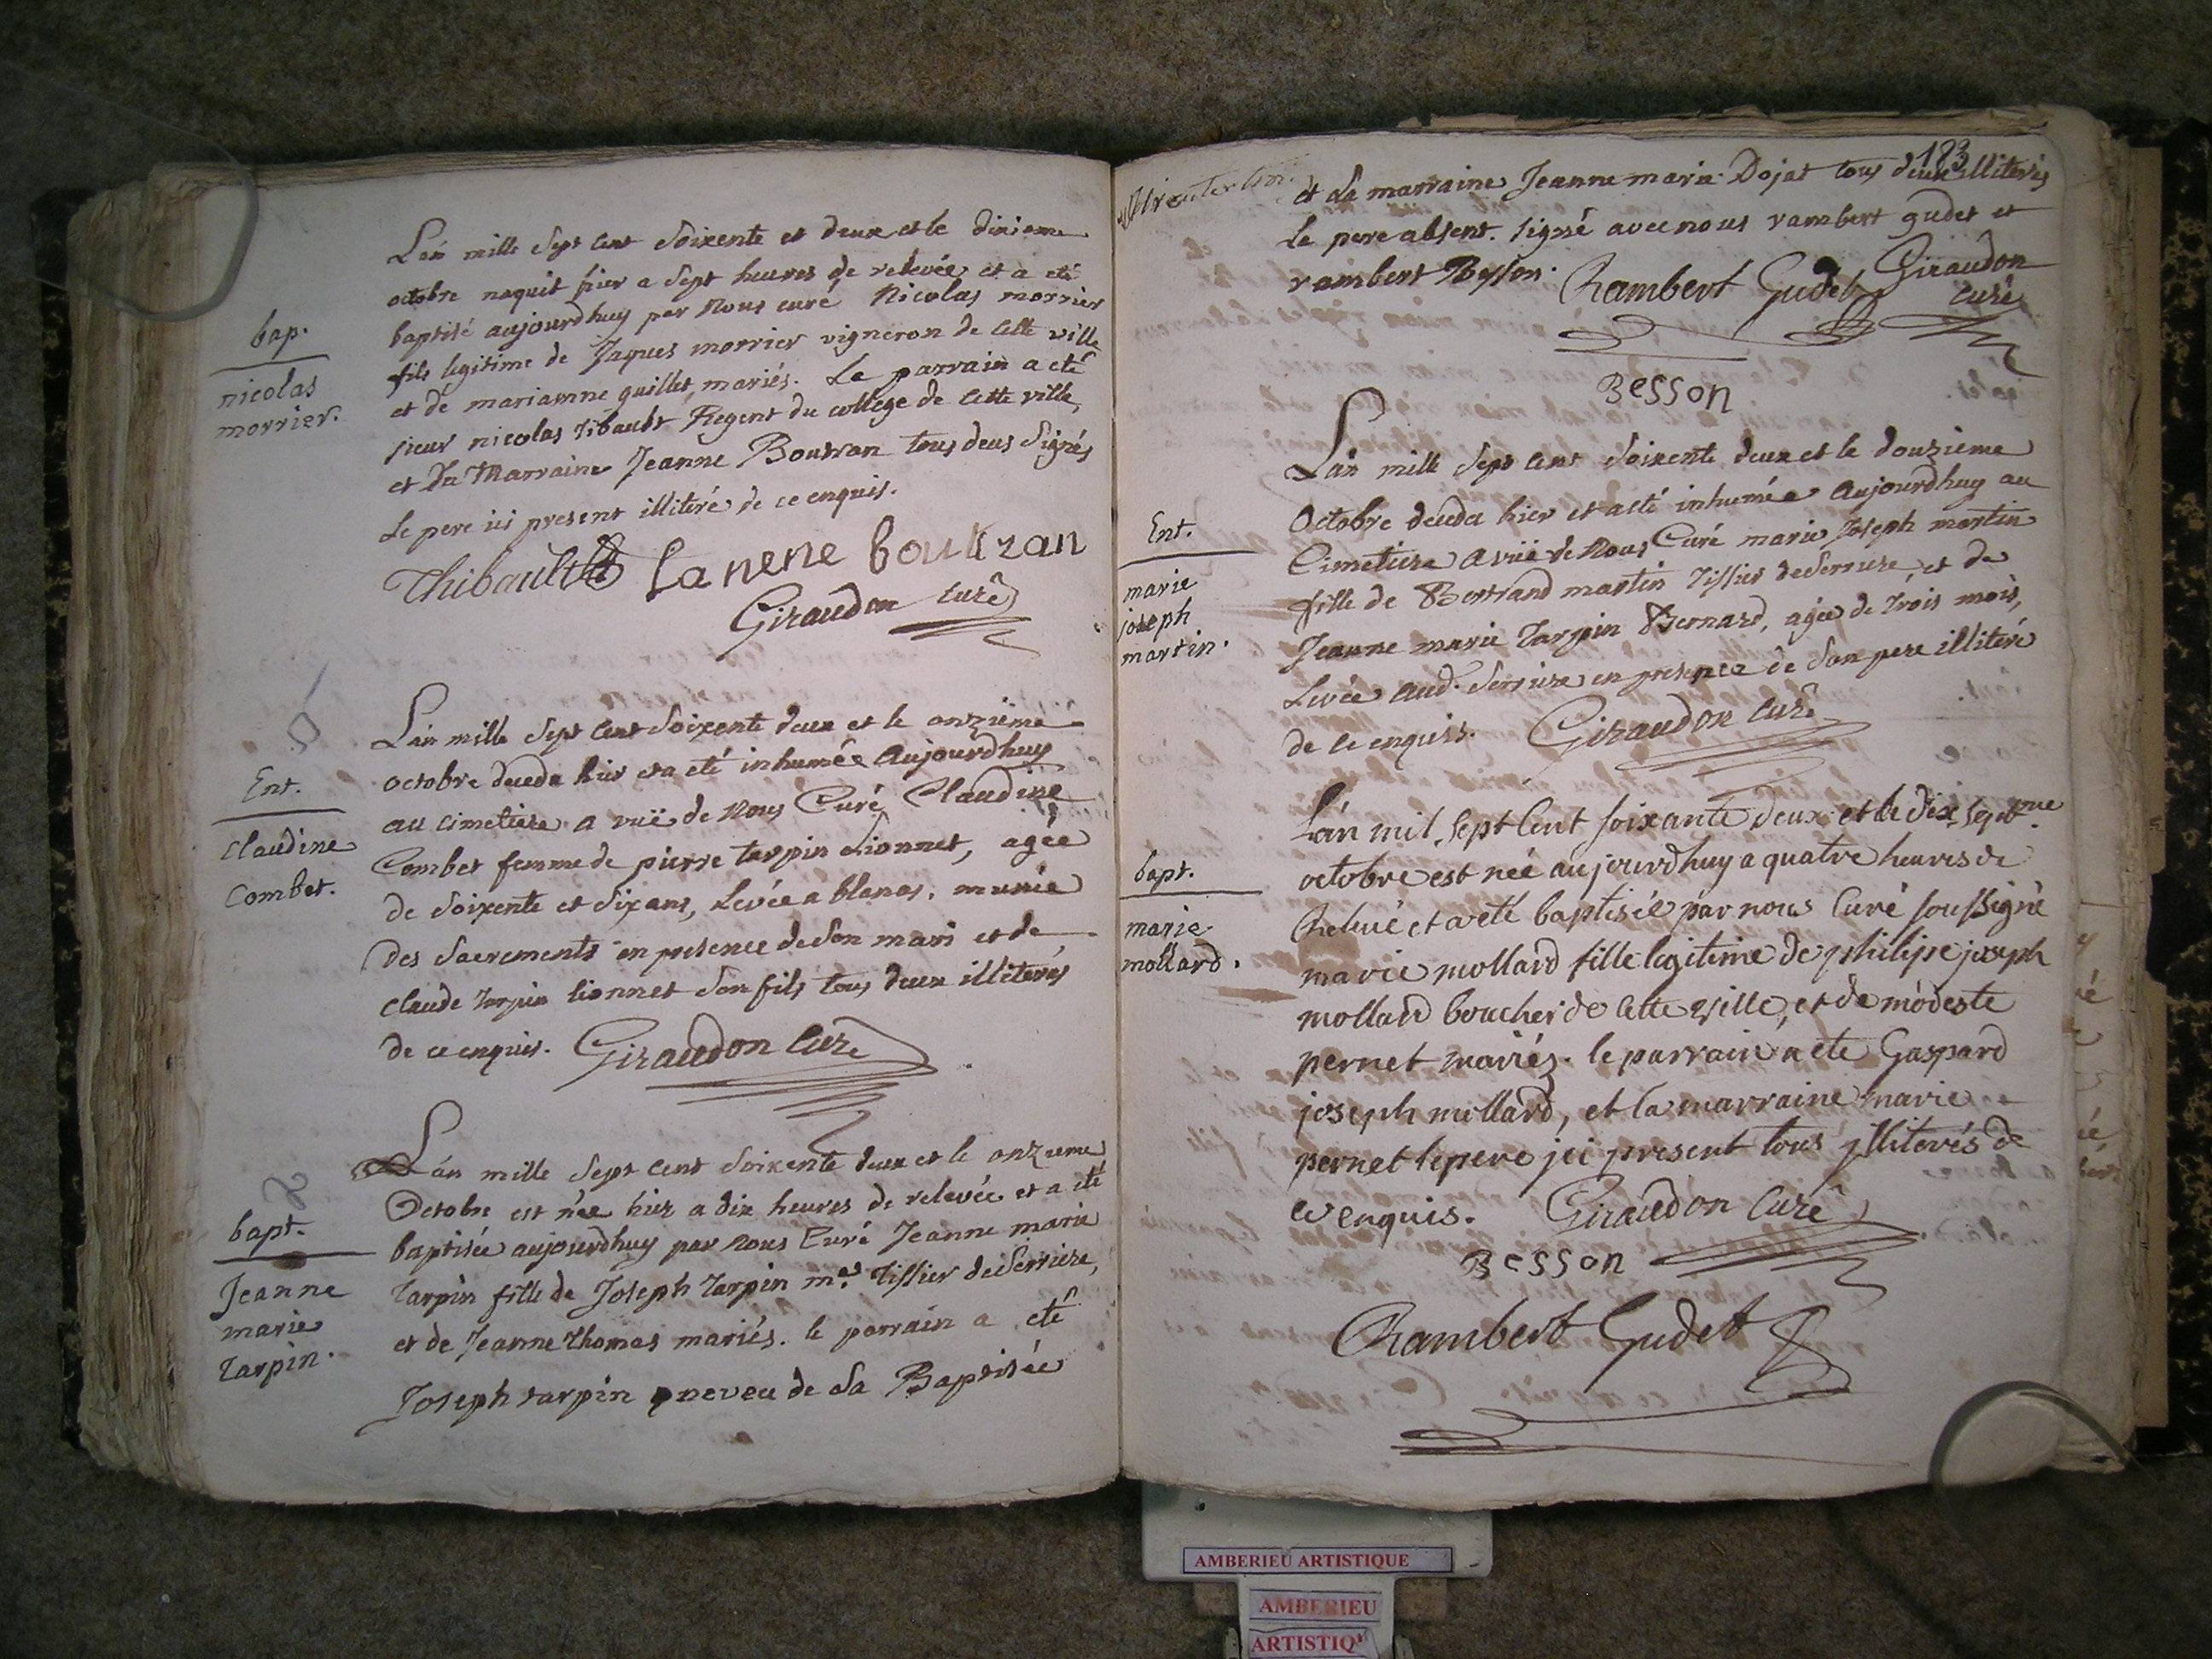 bap.
nicolas
morrier.
L'an mille sept cent soixente et deux et le dixieme
octobre naquit hier a sept heures de relevée et a eté
baptisé aujourdhuy par nous curé Nicolas morrier
fils legitime de Jaques morrier vigneron de cette ville
et de marianne quillet mariés. Le parrain a eté
sieur nicolas tibault Regent du college de cette ville,
et La Marraine Jeanne Boutran tous deus signés
Le pere ici present illiteré de ce enquis.
Thibault la nene boutran
Giraudon curé
Ent.
claudine
Combet.
L'an mille sept cent soixente deux et le onzième
octobre deceda hier et a eté inhumée aujourdhuy
au cimetiere a vüe de nous Curé Claudine
Combet femme de pierre tarpin Lionnet, agée
de soixente et dix ans, Levée a blanas, munie
des sacrements en presence de son mari et de
claude tarpin lionnet son fils tous deux illiterés
de ce enquis. Giraudon Curé
bapt.
Jeanne
marie
tarpin.
L'an mille sept cent soixente deux et le onzieme
Octobre est née hier a dix heures de relevée et a eté
baptisée aujourdhuy par nous Curé Jeanne marie
tarpin fille de Joseph tarpin me. tissier de serriere,
et de Jeanne thomas mariés. le parrain a eté
Joseph tarpin neveu de La Baptisée
183
et La marraine Jeanne marie Dojat tous deux illiterés
Le pere absent. signé avec nous rambert gudet et
rambert Besson. Rambert Gudet Giraudon
curé
Besson
Ent.
marie
joseph
martin.
L'an mille sept cent soixente deux et le douzieme
Octobre deceda hier et a eté inhumée aujourdhuy au
Cimetiere a vüe de nous Curé marie Joseph martin
fille de Bertrand martin tissier de serriere, et de
Jeanne marie tarpin Bernard, agée de trois mois,
Levée aud. serriere en presence de son pere illiteré
de ce enquis. Giraudon Curé
bapt.
marie
mollard.
L'an mil sept cent soixante deux et le dix sept me
octobre est née aujourdhuy a quatre heures de
Relevé et a eté baptisée par nous Curé soussigné
marie mollard fille legitime de philipe joseph
mollard boucher de cette ville, et de modeste
pernet mariés. le parrain a eté Gaspard
joseph mollard, et la marraine marie
pernet le pere ici present tous illiterés de
ce enquis. Giraudon Curé
Besson
Rambert Gudet
AMBERIEU ARTISTIQUE
AMBERIEU
ARTISTIQ